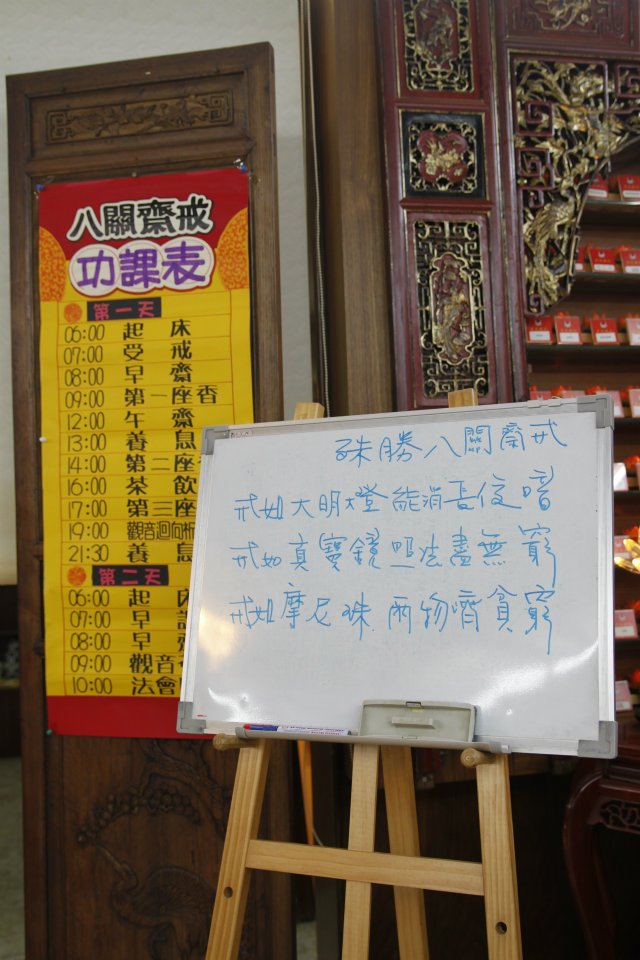 八關齋戒
功課表
第一天
06:00 起床
07:00 受戒
08:00 早齋
09:00 第一座香
12:00 午齋
13:00 養息
14:00 第二座
16:00 茶飲
17:00 第三座
19:00 觀音迴向祈
21:30 養息
第二天
06:00 起床
07:00 早課
08:00 早齋
09:00 觀音
10:00 法會
殊勝八關齋戒
戒如大明燈能消長夜暗
戒如真寶鏡照法盡無窮
戒如摩尼珠雨物濟貧窮